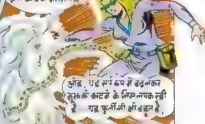 ओह, यह सर्प रूप में बदलकर
मुझको काटने के लिए लपक रही
है यह फुर्तीली भी बहुत है.